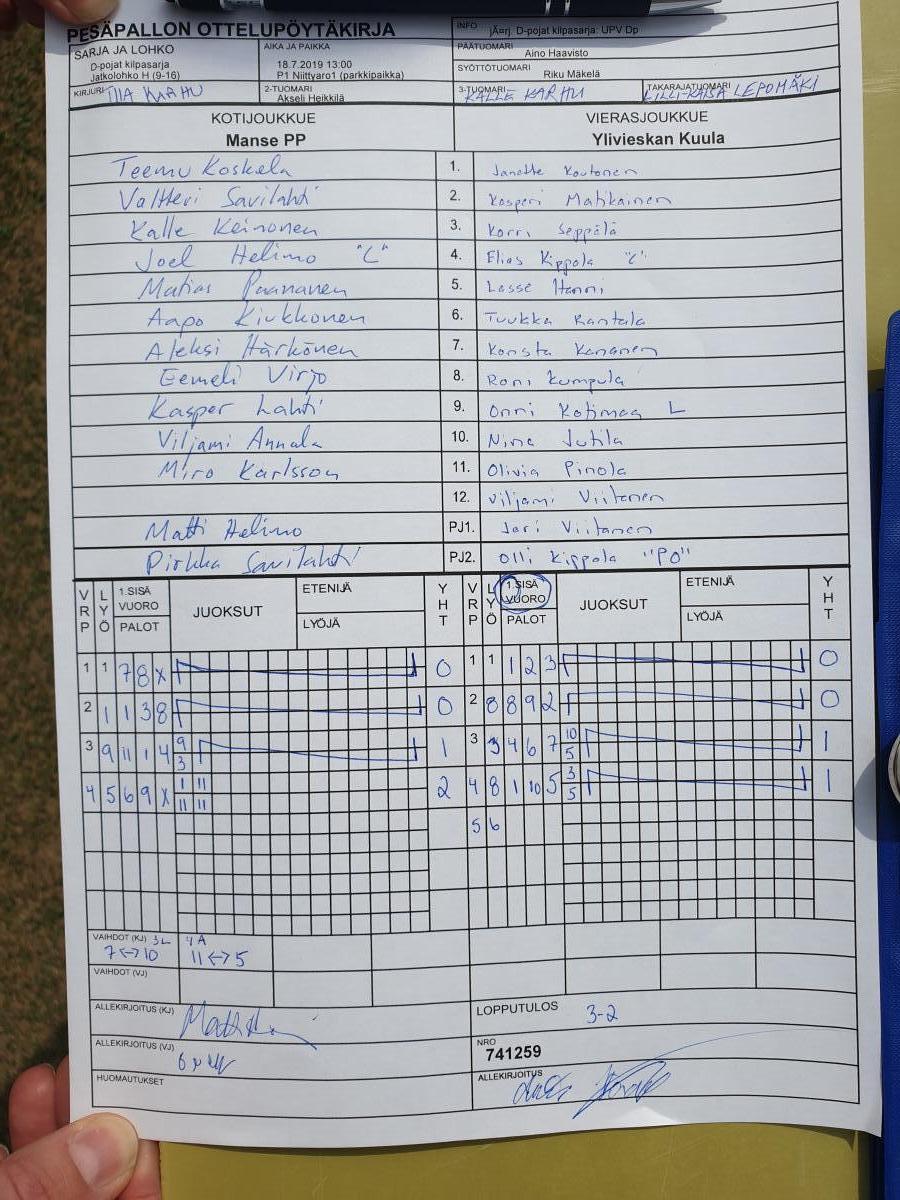 PESÄPALLON OTTELUPÖYTÄKIRJA
INFO
jÃ¤rj. D-pojat kilpasarja: UPV Dp
SARJA JA LOHKO
D-pojat kilpasarja
Jatkolohko H (9-16)
AIKA JA PAIKKA
18.7.2019 13:00
P1 Niittyaro1 (parkkipaikka)
PÄÄTUOMARI
Aino Haavisto
SYÖTTÖTUOMARI
Riku Mäkelä
KIRJURI
TIIA KARHU
2-TUOMARI
Akseli Heikkilä
3-TUOMARI
KALLE KARHU
TAKARAJATUOMARI
LILLI-KAISA LEPOMÄKI
KOTIJOUKKUE
Manse PP
VIERASJOUKKUE
Ylivieskan Kuula
Teemu Koskela 1. Janette Koutonen
Valtteri Savilahti 2. Kasperi Matikainen
Kalle Keinonen 3. Korri Seppälä
Joel Helimo "C" 4. Elias Kippola "C"
Matias Paananen 5. Lasse Hanni
Aapo Kiukkonen 6. Tuukka Rantala
Aleksi Härkönen 7. Konsta Kananen
Eemeli Virjo 8. Roni Kumpula
Kasper Lahti 9. Onni Kotimaa L
Viljami Annala 10. Nina Jutila
Miro Karlsson 11. Olivia Pinola
12. Viljami Viitanen
Matti Helimo PJ1. Jari Viitanen
Pirkka Savilahti PJ2. Olli Kippola "PO"
VRP LYÖ 1.SISÄ VUORO PALOT JUOKSUT ETENIJÄ LYÖJÄ YHT
VRP LYÖ 1.SISÄ VUORO PALOT JUOKSUT ETENIJÄ LYÖJÄ YHT
1 1 7 8 X 0 1 1 1 2 3 0
2 1 1 3 8 0 2 8 8 9 2 0
3 9 11 1 4 9 3 1 3 3 4 6 7 10 5 1
4 5 6 9 X 1 11 11 11 2 4 8 1 10 5 3 5 1
5 6
VAIHDOT (KJ) 3L 7<->10 4A 11<->5
VAIHDOT (VJ)
ALLEKIRJOITUS (KJ)
LOPPUTULOS 3-2
ALLEKIRJOITUS (VJ)
NRO
741259
HUOMAUTUKSET
ALLEKIRJOITUS